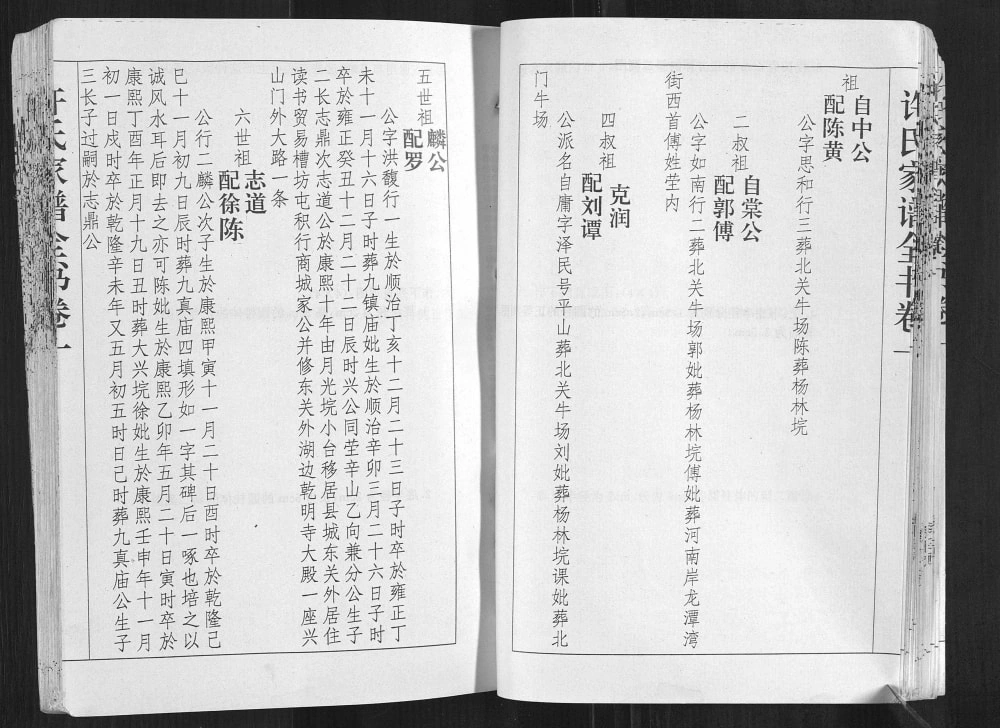 许氏家谱全书卷一
祖
自中公
配陈黄
公字思和行三葬北关牛场陈葬杨林垸
二叔祖
自棠公
配郭傅
公字如南行二葬北关牛场郭妣葬杨林垸傅妣葬河南岸龙潭湾
街西首傅姓茔内
四叔祖
克润
配刘谭
公派名自庸字泽民号平山葬北关牛场刘妣葬杨林垸课妣葬北
门牛场
五世祖
麟公
配罗
公字洪馥行一生於顺治丁亥十二月二十三日子时卒於雍正丁
未十一月十六日子时葬九镇庙妣生於顺治辛卯三月二十六日子时
卒於雍正癸丑十二月二十二日辰时兴公同茔辛山乙向兼分公生子
二长志鼎次志道公於康熙十年由月光垸小台移居县城东关外居住
读书贸易槽坊屯积行商城家公并修东关外湖边乾明寺大殿一座兴
山门外大路一条
六世祖
志道
配徐陈
公行二麟公次子生於康熙甲寅十一月二十日酉时卒於乾隆己
巳十一月初九日辰时葬九真庙四填形如一字其碑后一啄也培之以
诚风水耳后即去之亦可陈妣生於康熙乙卯年五月二十日寅时卒於
康熙丁酉年正月十九日丑时葬大兴垸徐妣生於康熙壬申年十一月
初一日戌时卒於乾隆辛未年又五月初五时日巳时葬九真庙公生子
三长子过嗣於志鼎公